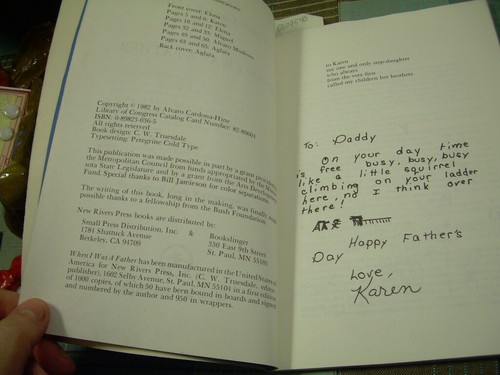 Front cover: Elena
Pages 5 and 6: Karen
Pages 10 and 12: Elena
Pages 32 and 33: Miguel
Pages 49 and 50: Alvaro Modesto
Pages 63 and 65: Agluta
Back cover: Agluta
Copyright © 1982 by Alvaro Cardona-Hine
Library of Congress Catalog Card Number: 82-80604
ISBN: 0-89823-036-5
All rights reserved
Book design: C. W. Truesdale
Typesetting: Peregrine Cold Type
This publication was made possible in part by a grant provided by
the Metropolitan Council from funds appropriated by the Minne-
sota State Legislature and by a grant from the Arts Development
Fund. Special thanks to Bill Jamieson for color separations.
The writing of this book, long in the making, was finally made
possible thanks to a fellowship from the Bush Foundation.
New Rivers Press books are distributed by:
Small Press Distribution, Inc. & Bookslinger
1781 Shattuck Avenue 330 East 9th Street
Berkeley, CA 94709 St. Paul, MN 55101
When I Was A Father has been manufactured in the United States of
America for New Rivers Press, Inc. (C. W. Truesdale, editor/
publisher), 1602 Selby Avenue, St. Paul, MN 55104 in a first edition
of 1000 copies, of which 50 have been bound in boards and signed
and numbered by the author and 950 in wrappers.
to Karen
my one and only step-daughter
who always
from the very first
called my children her brothers
To: Daddy
On your day time
is free busy, busy, busy
like a little squirrel
climbing on your ladder
here, no I think over
there!
Happy Father's
Day
Love,
Karen